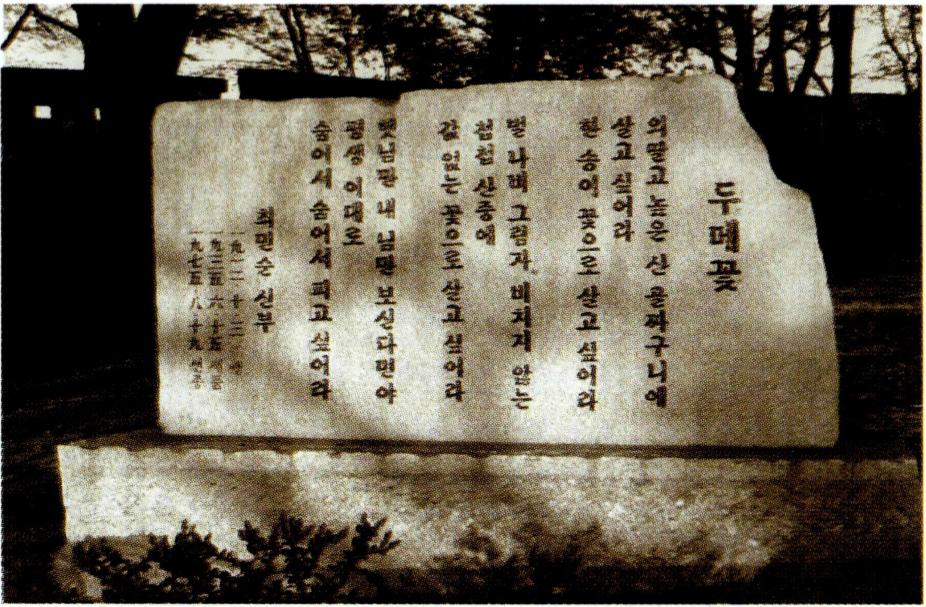 두메꽃
외딸고 높은 산 골짜구니에
살고 싶어라
한 송이 꽃으로 살고 싶어라
벌 나비 그림자 비치지 않는
첩첩 산중에
값 없는 꽃으로 살고 싶어라
햇님만 내 님만 보신다면야
평생 이대로
숨어서 숨어서 피고 싶어라
최민순 신부
一九一二 十 三 生
一九三五 六 十五 서품
一九七五 八 十九 선종